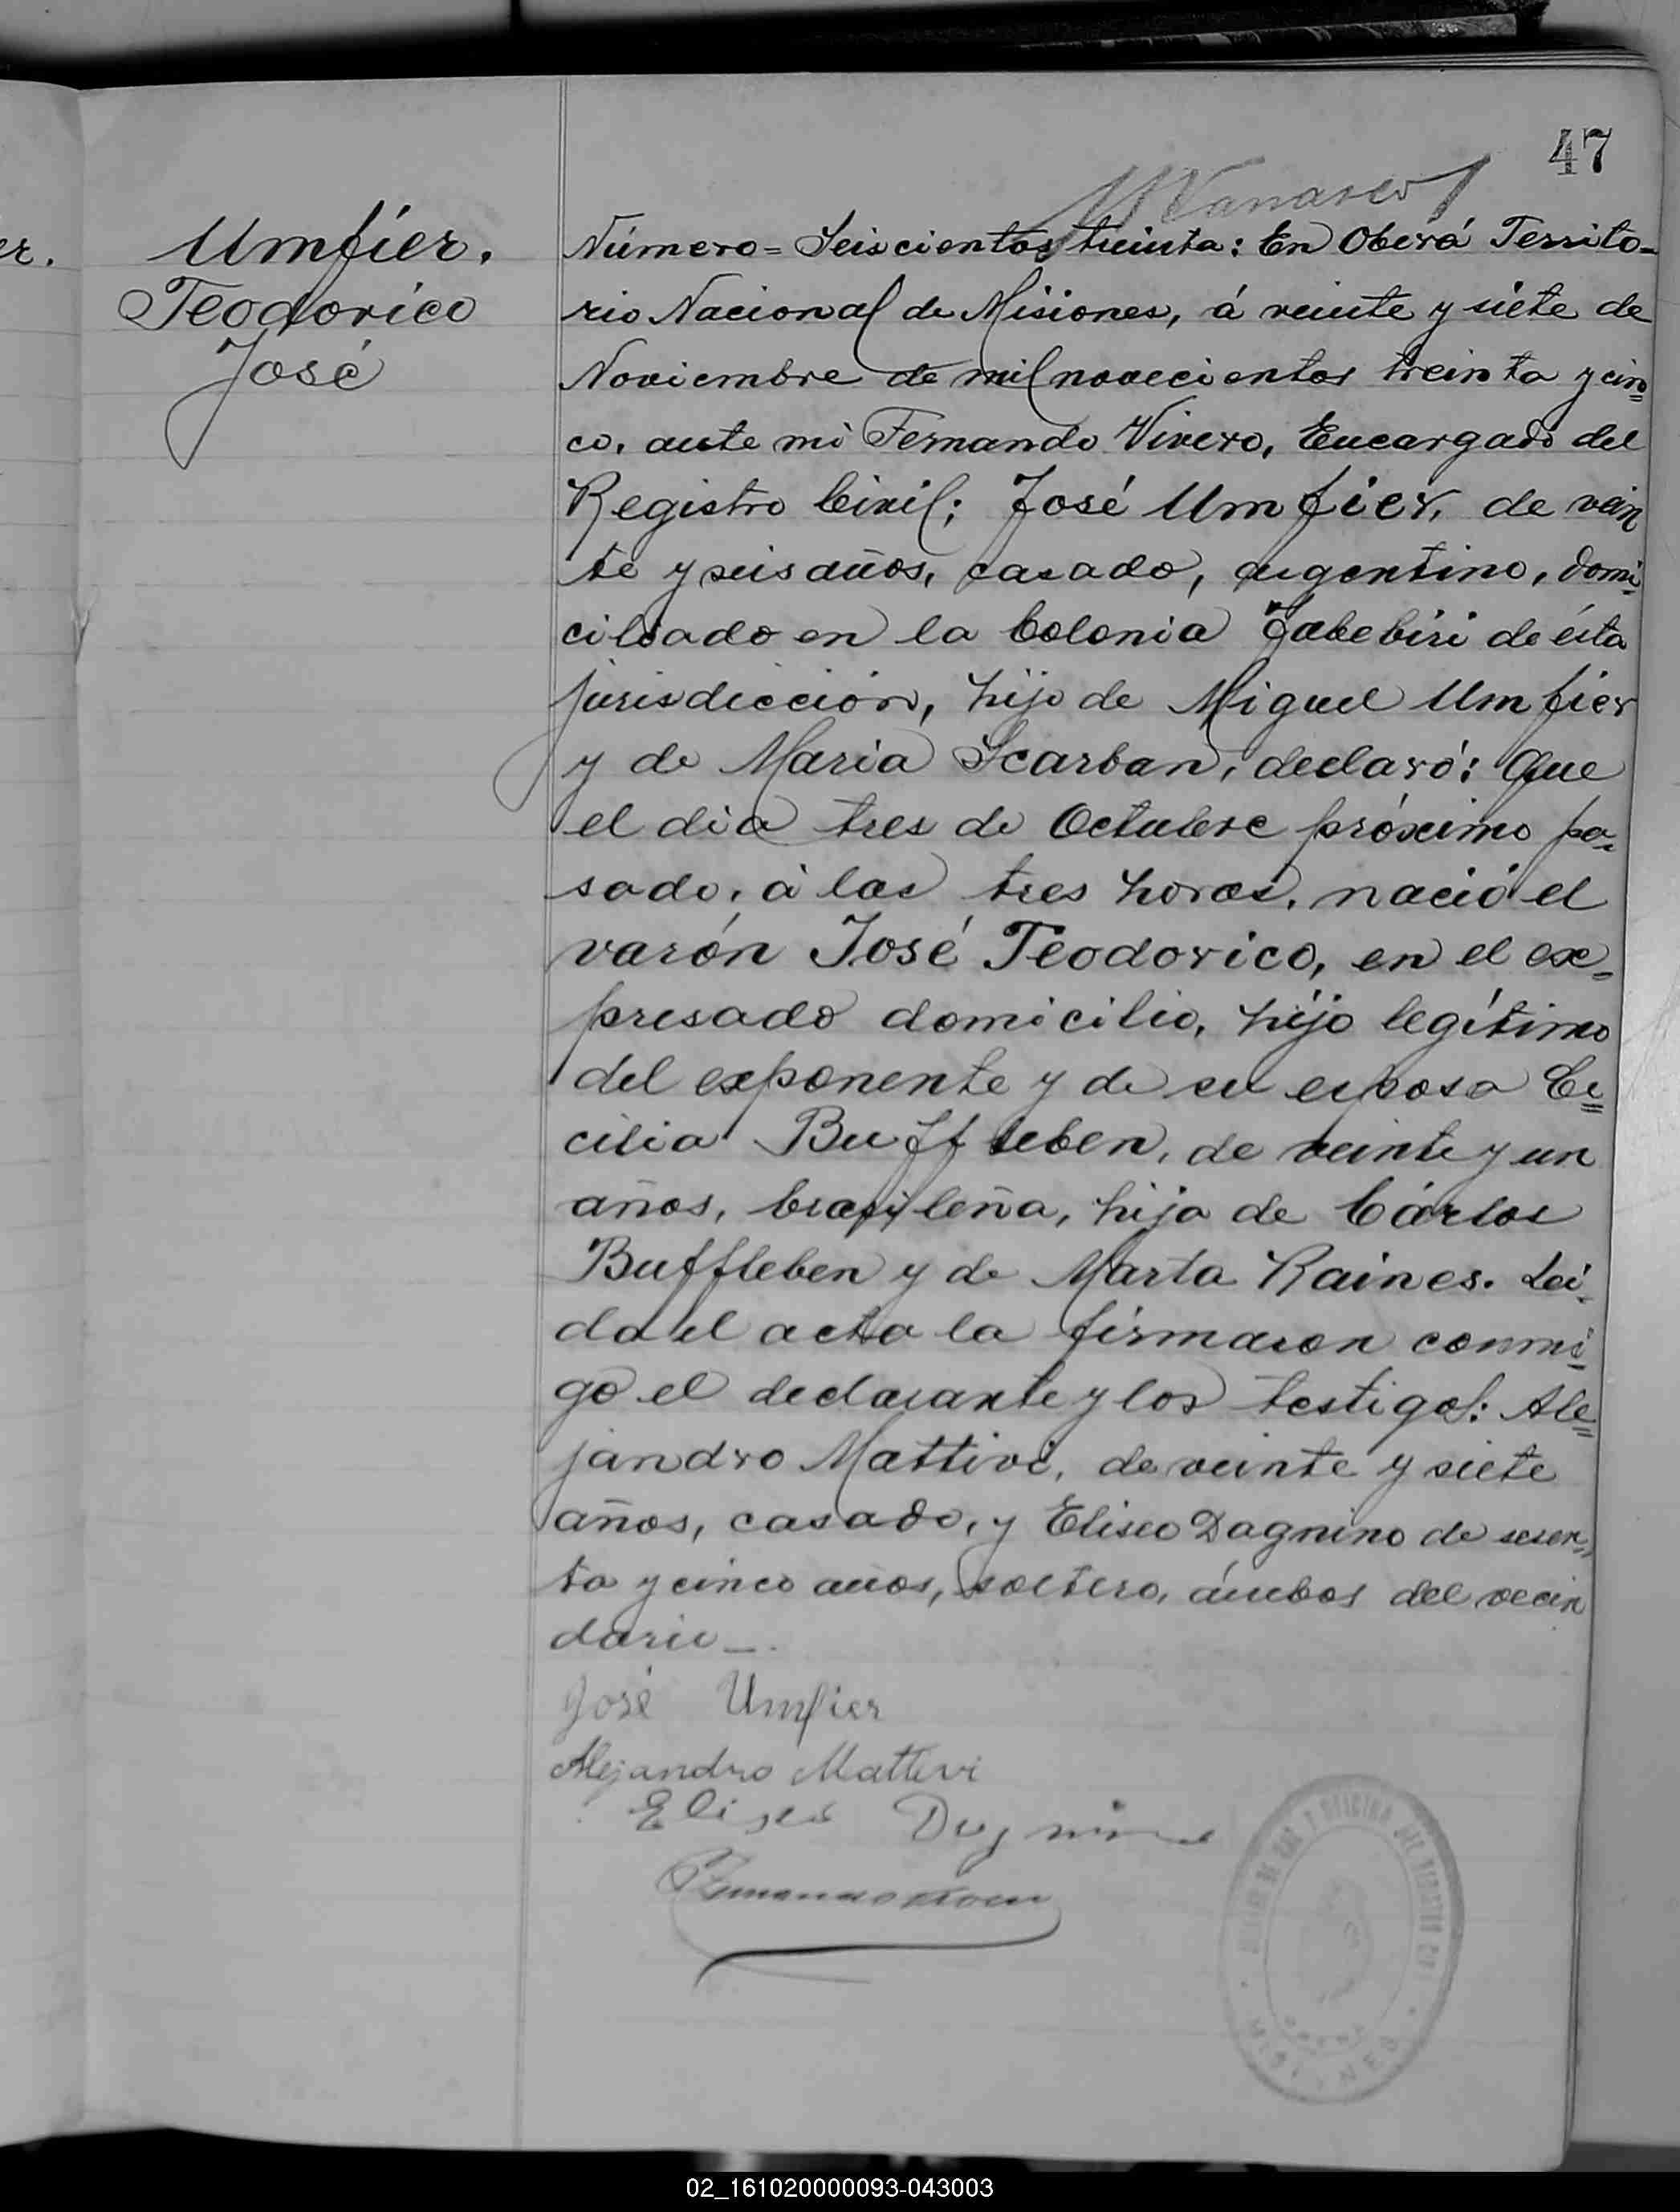 47
er.
Umfier.
Teodorico
José
Número = Seiscientos treinta: En Oberá Territo-
rio Nacional de Misiones, á veinte y siete de
Noviembre de mil novecientos treinta y cin=
co, ante mi Fernando Vivero, Encargado del
Registro Civil; José Umfier, de vein
te y seis años, casado, argentino, domi=
ciliado en la Colonia Yabebiri de ésta
jurisdicción, hijo de Miguel Umfier
y de Maria Scarban, declaró: Que
el dia tres de Octubre próximo pa=
sado, á las tres horas, nació el
varón José Teodorico, en el ex=
presado domicilio, hijo legítimo
del exponente y de su esposa Ce=
cilia Buffleben, de veinte y un
años, brasileña, hija de Cárlos
Buffleben y de Marta Raines. Lei=
da el acta la firmaron conmi=
go el declarante y los testigos: Ale=
jandro Mattivi, de veinte y siete
años, casado, y Eliseo Dagnino de sesen=
ta y cinco años, soltero, ámbos del vecin
dario_.
José Umfier
Alejandro Mattevi
Eliseo Dagnino
MISIONES
02_161020000093-043003